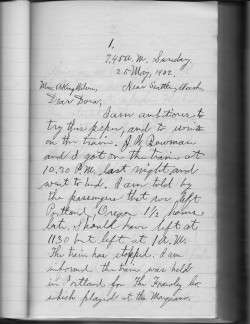 1.
7.45 A.M. Sunday
25 May, 1902.
Near Seattle, Wash.
Dear Dora,
I am ambitious to
try this paper, and to write
on the train. J. A. Bowman
and I got on the train at
10.30 P.M. last night, and
went to bed. I am told by
the passengers that we left
Portland Oregon 1 1/2 hours
late. Should have left at
11 30 but left at 1 A.M.
The train has stopped. I am
informed the train was held
in Portland for The Frawley Co
which played at the Marquam.